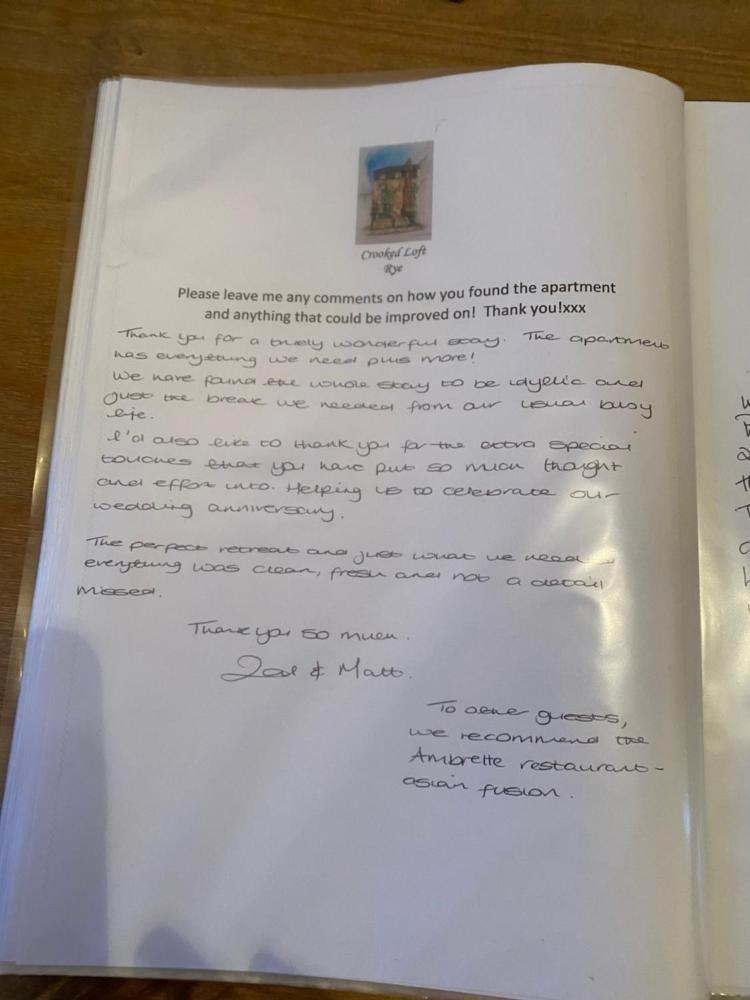 Crooked Loft
Rye
Please leave me any comments on how you found the apartment
and anything that could be improved on! Thank you!xxx
Thank you for a truely wonderful stay. The apartment
has everything we need plus more!
We have found the whole stay to be idyllic and
just the break we needed from our usual busy
life.
I'd also like to thank you for the extra special
touches that you have put so much thought
and effort into. Helping us to celebrate our
wedding anniversary.
The perfect retreat and just what we need
everything was clean, fresh and not a detail
missed.
Thank you so much.
& Matt.
To other guests,
we recommend the
Ambrette restaurant -
asian fusion.